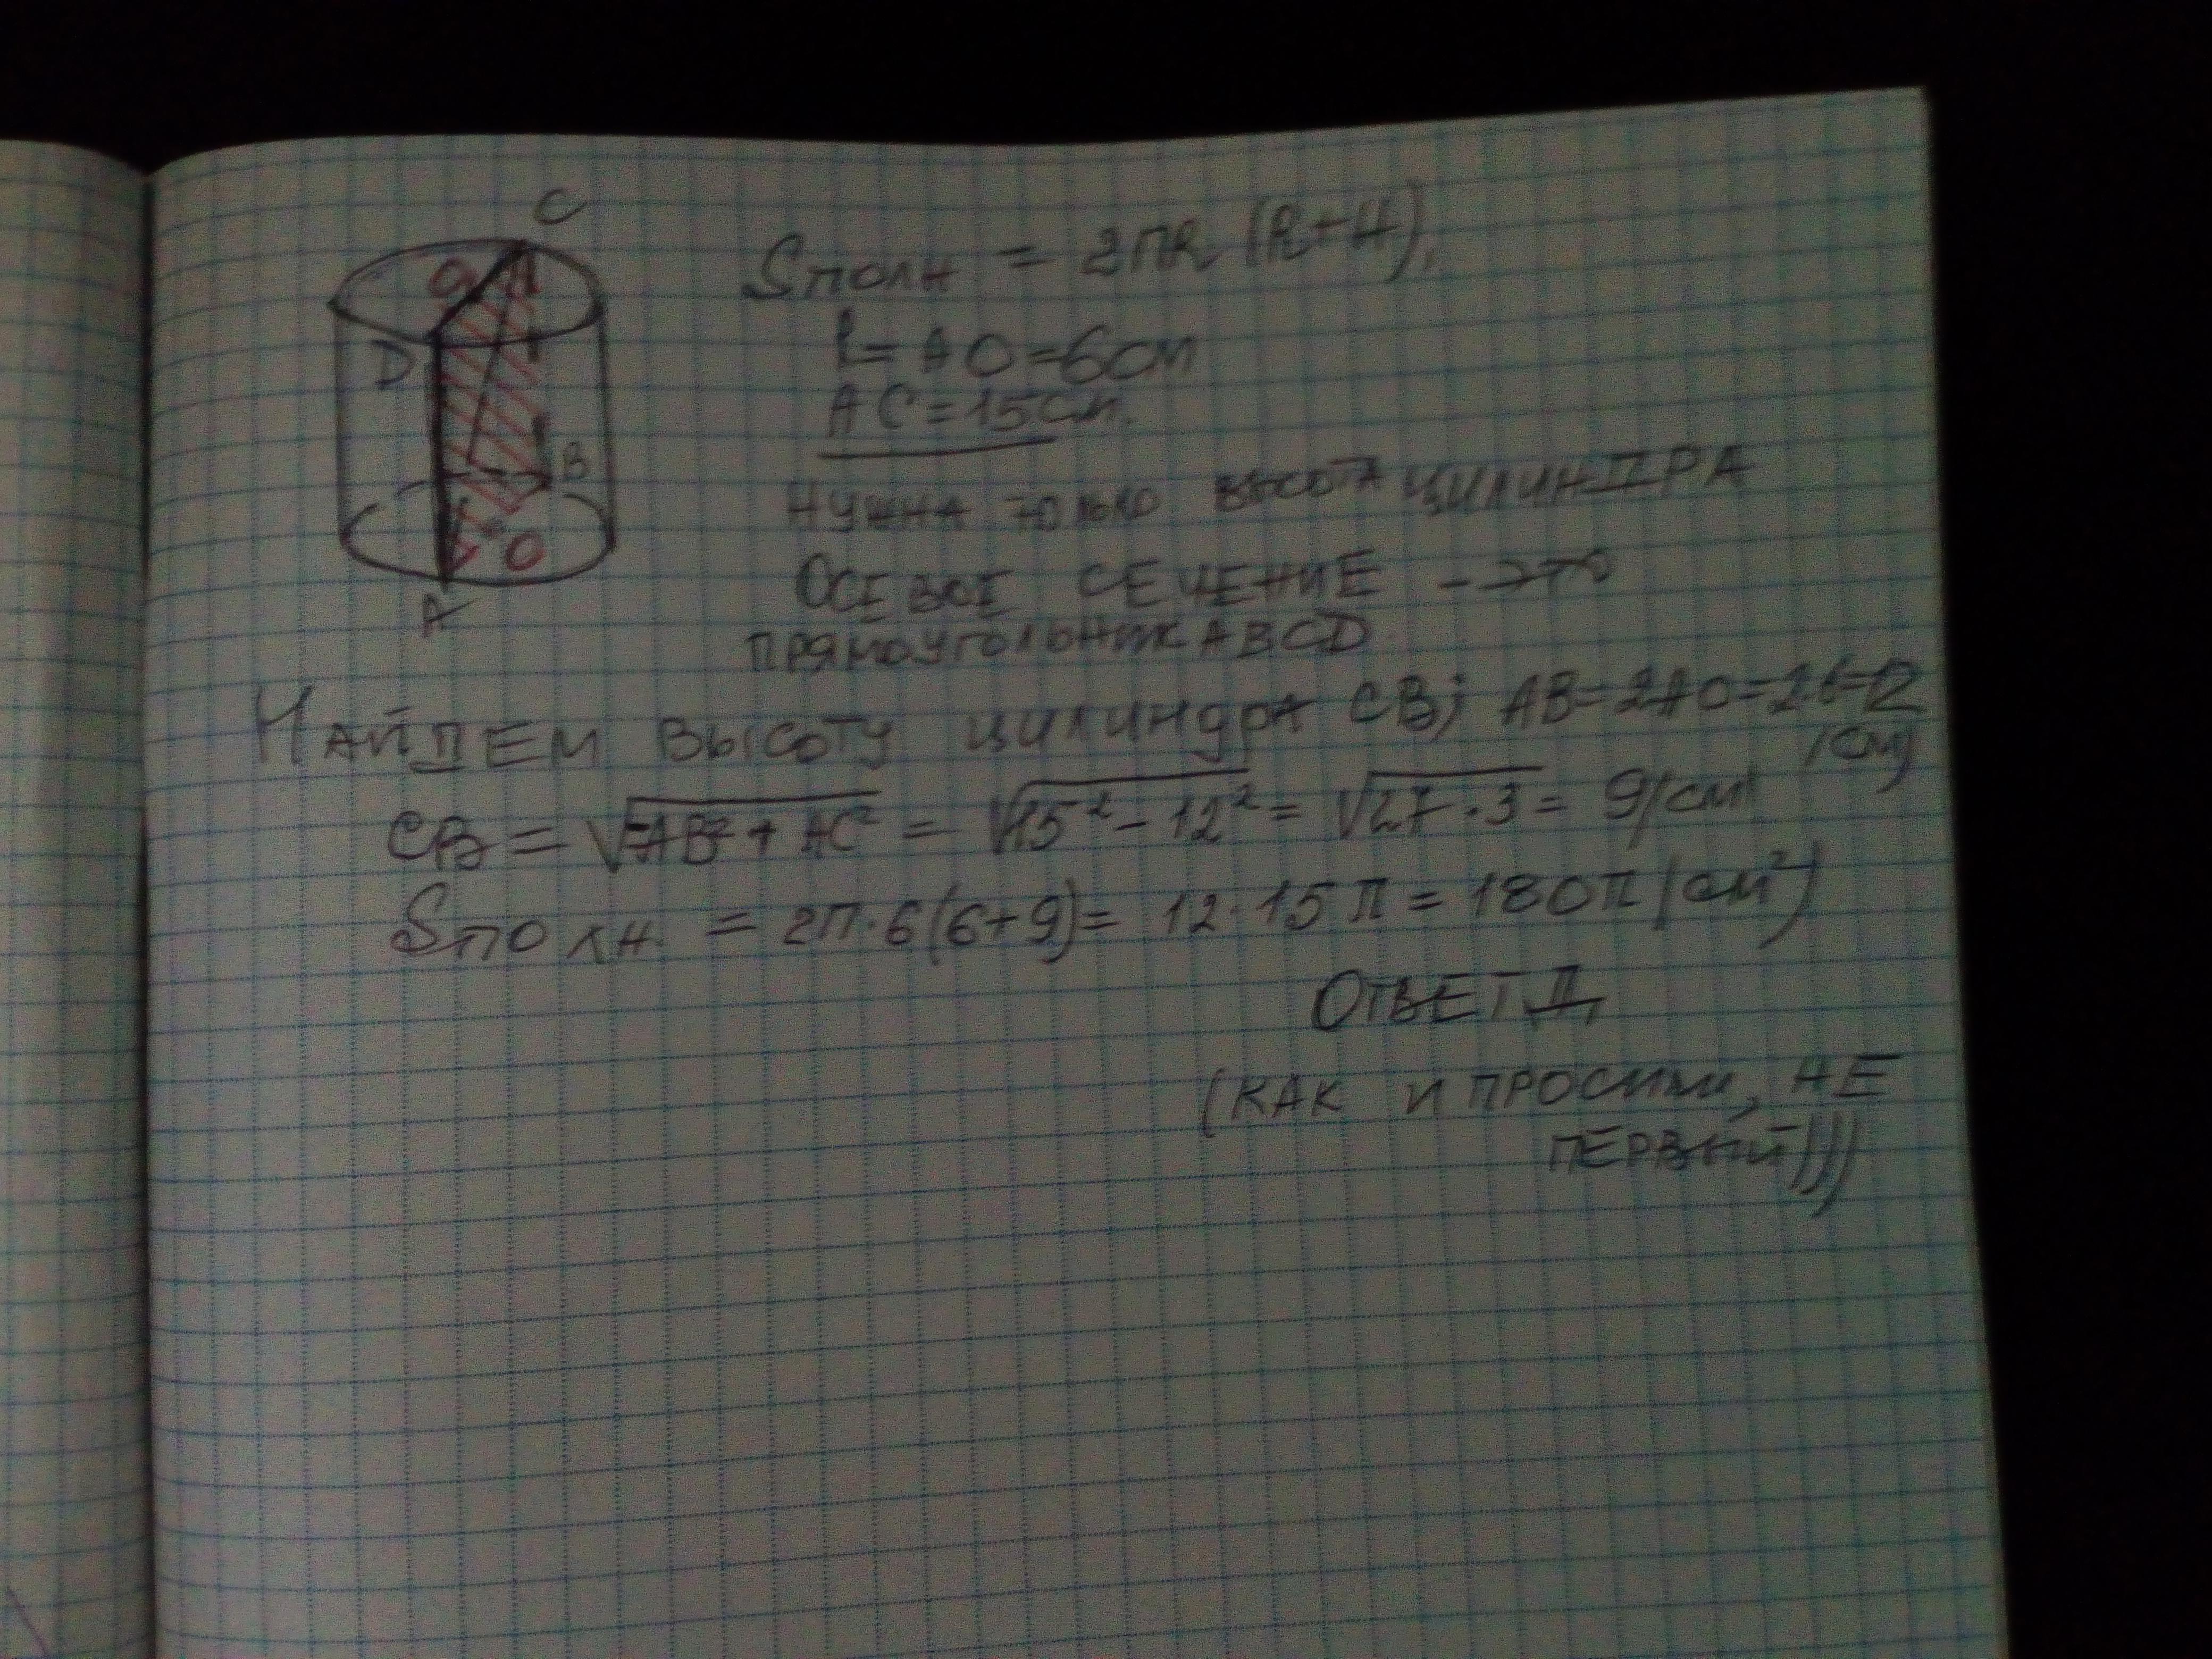 C
O
D
B
O
A
Sполн = 2ПR (R+H),
R = AO = 6см
AC = 15см.
НУЖНА только высота ЦИЛИНДРА
ОСЕВОЕ СЕЧЕНИЕ - это
ПРЯМОУГОЛЬНИК ABCD.
НАЙДЕМ ВЫСОТУ цилиндра CB; AB=2AO=2·6=12
(см)
CB = √-AB²+AC² = √15²-12² = √27·3 = 9(см)
Sполн. = 2П·6(6+9)= 12·15П = 180П(см²)
ОТВЕТ Д,
(КАК И ПРОСИЛИ, НЕ
ПЕРВЫЙ)))